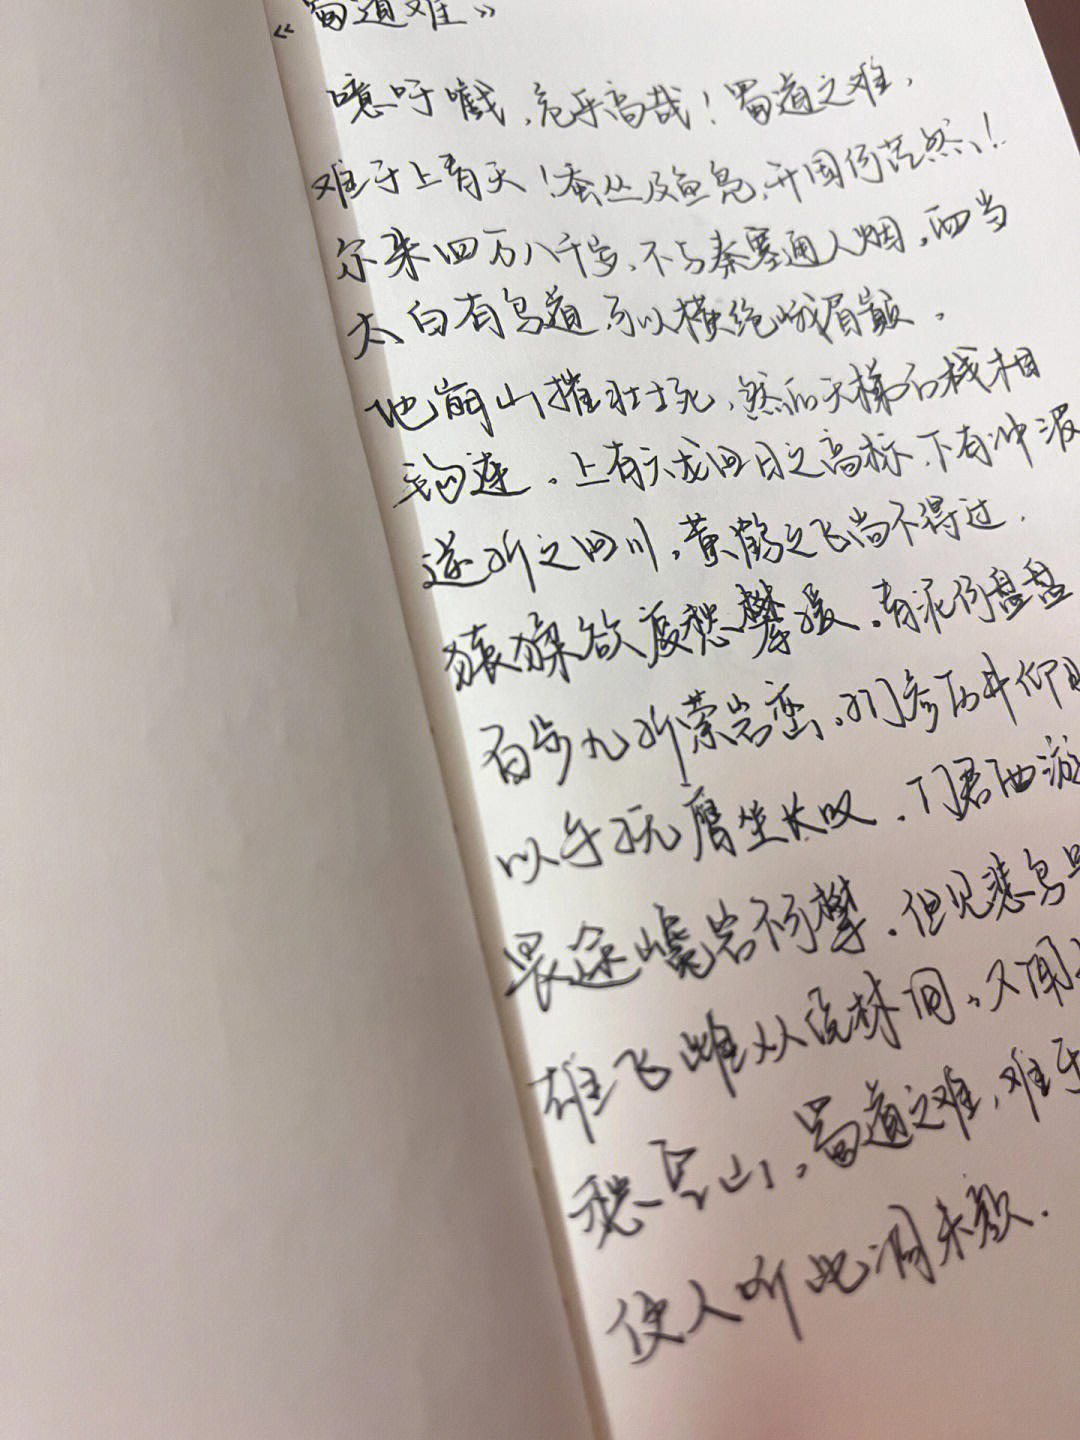 《蜀道难》
噫吁戲,危乎高哉!蜀道之难,
难于上青天!蚕丛及鱼凫,开国何茫然!
尔来四万八千岁,不与秦塞通人烟,西当
太白有鸟道,可以横绝峨眉巅。
地崩山摧壮士死,然后天梯石栈相
钩连。上有六龙回日之高标,下有冲波
逆折之回川,黄鹤之飞尚不得过.
猿猱欲度愁攀援。青泥何盘盘
百步九折萦岩峦,扪参历井仰
以手抚膺坐长叹.问君西游
畏途巉岩不可攀.但见悲鸟号
雄飞雌从绕林间。又闻
愁空山。蜀道之难,难于
使人听此凋朱颜.